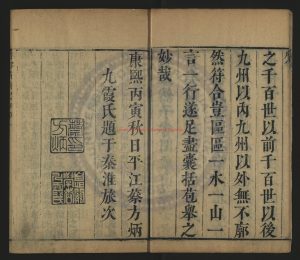 之千百世以前千百世以後
九州以內九州以外無不廓
然符合豈區區一水一山一
言一行遂足盡囊括苞舉之
妙哉
康熙丙寅秋日平江蔡方炳
九霞氏題于秦淮旅次